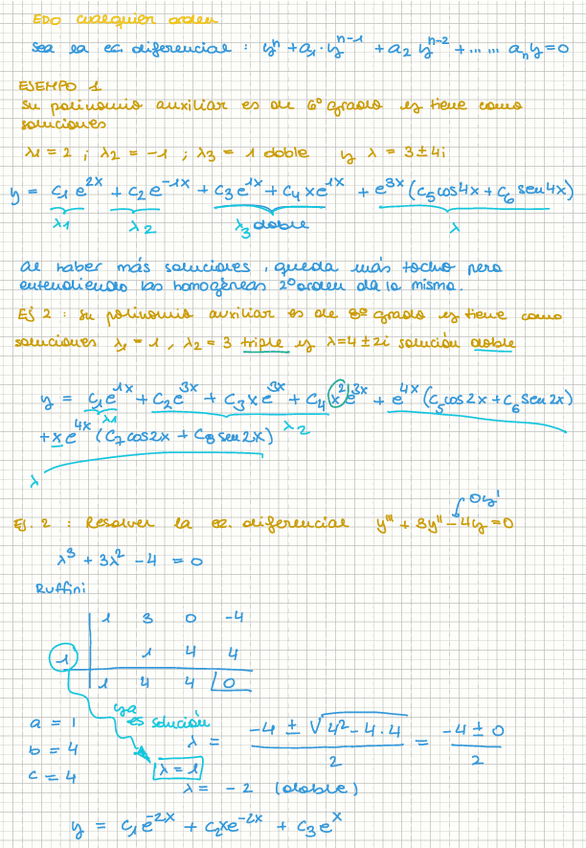 EDO cualquier orden
Sea la ec. diferencial : yⁿ + a₁ · yⁿ⁻¹ + a₂ yⁿ⁻² + ...... aₙy = 0
EJEMPLO 1
Su polinomio auxiliar es de 6º grado y tiene como
soluciones
λ1 = 2 ; λ2 = -1 ; λ3 = 1 doble y λ = 3 ± 4i
y = c₁e^2X + c₂e^-1X + c₃e^1X + c₄xe^1X + e^3X (c₅cos4x + c₆ sen4x)
λ1 λ2 λ3 doble λ
Al haber más soluciones, queda más tocho pero
entendiendo las homogéneas 2º orden da lo mismo.
Ej 2 : Su polinomio auxiliar es de 8º grado y tiene como
soluciones λ₁ = 1, λ₂ = 3 triple y λ = 4 ± 2i solución doble
y = c₁e^1X + c₂e^3X + c₃xe^3X + c₄x²e^3X + e^4X (c₅cos2x + c₆sen2x)
λ1 λ2
+xe^4X (c₇cos2x + c₈sen2x)
λ
0y'
Ej. 2 : Resolver la ec. diferencial y''' + 3y'' - 4y = 0
λ³ + 3λ² - 4 = 0
Ruffini
1 3 0 -4
1 1 4 4
1 4 4 0
ya
es solución
λ = 1
a = 1
b = 4
c = 4
λ = (-4 ± √(4² - 4·4))/2 = (-4 ± 0)/2
λ = -2 (doble)
y = c₁e^-2X + c₂xe^-2X + c₃e^X